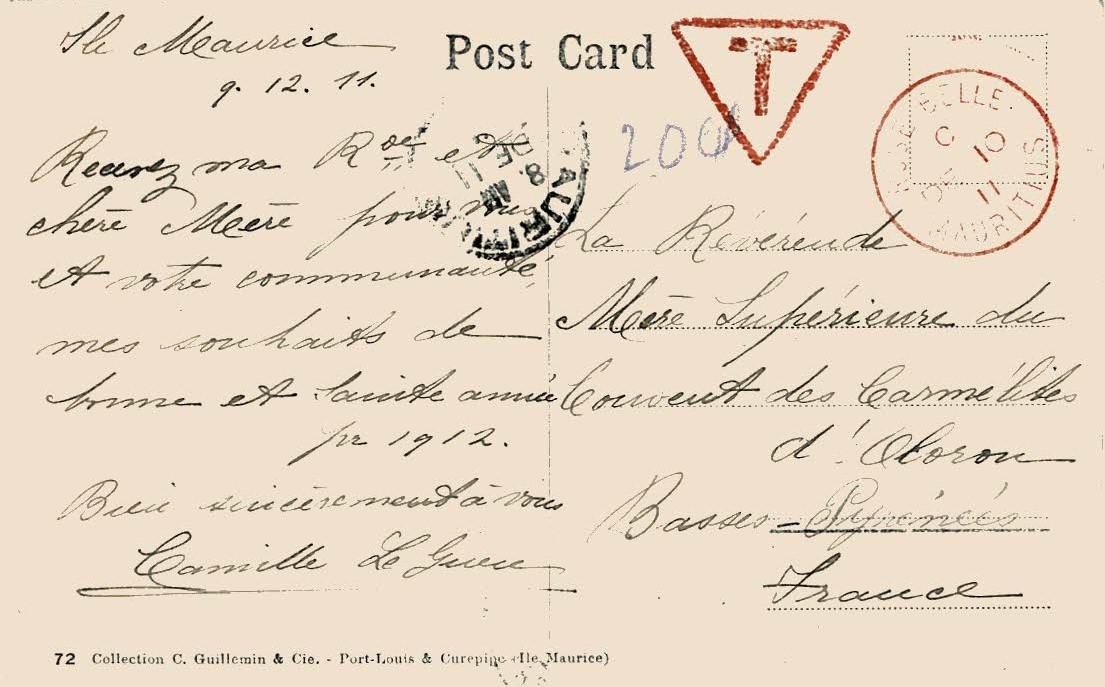 Post Card
T
200
ROSE BELLE
C
DE 10
11
MAURITIUS
MAURITIUS
8. AM
DE 9
11
Ile Maurice
9. 12. 11.
Recevez ma Rde et
chère Mère pour vous
et votre communauté,
mes souhaits de
bonne et Sainte année
pr 1912.
Bien sincèrement à vous
Camille Le
La Révérende
Mère Supérieure du
Couvent des Carmélites
d'Oloron
Basses-Pyrénées
France
72 Collection C. Guillemin & Cie. - Port-Louis & Curepipe (Ile Maurice)